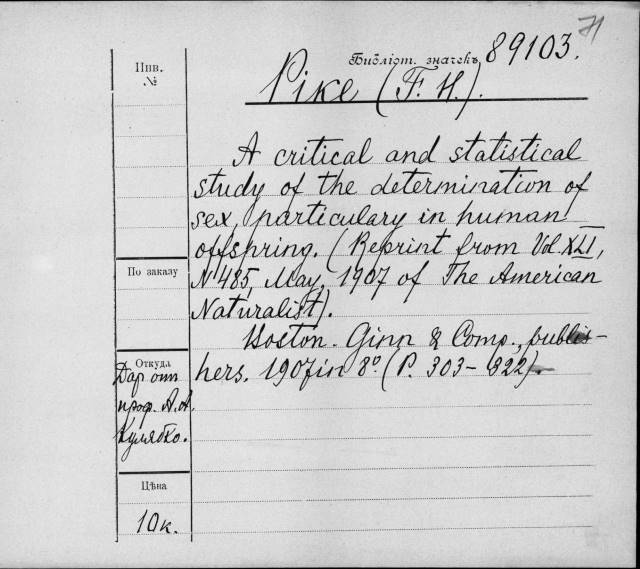 71
Библіот. значекъ 89103.
Инв.
№
Pike (F. H.).
A critical and statistical
study of the determination of
sex, particulary in human
offspring. (Reprint from Vol. XLI,
N 485, May, 1907 of The American
Naturalist).
По заказу
Boston. Ginn & Comp., publis-
hers. 1907 in 8° (P. 303-322).
Откуда
Дар отъ
проф. А. А.
Кулябко.
Цѣна
10 к.